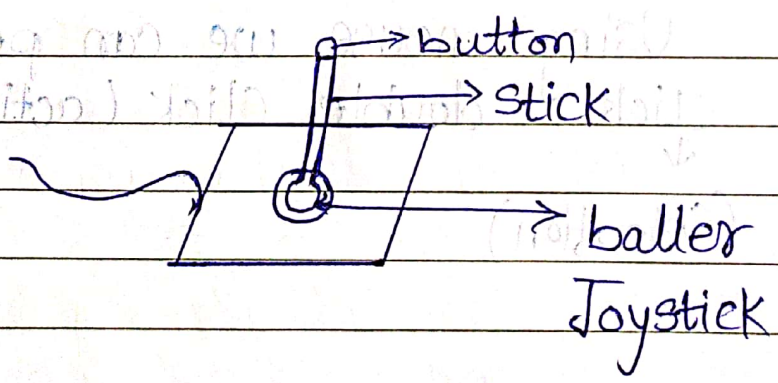 button
stick
baller
Joystick